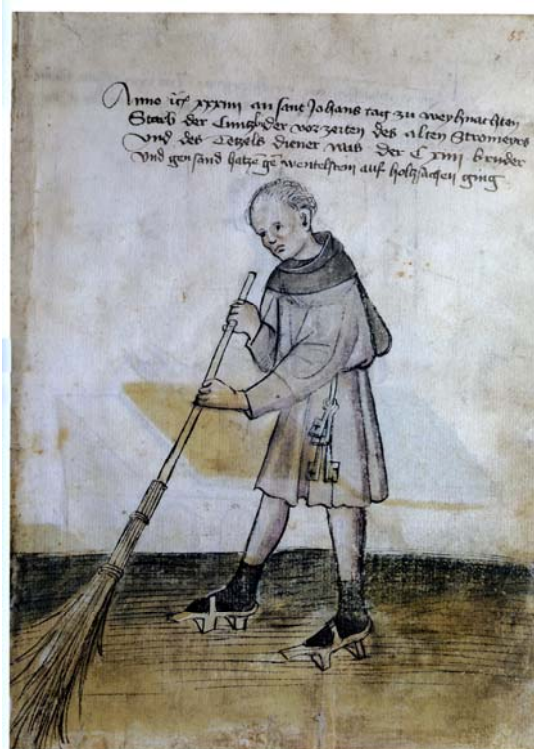 55
Anno iiijc xxxiiij an sant Johans tag zu weyhnachten
Starb der Cuntz der vor zeiten des alten Stromeyrs
und des Tetzels diener was der C xiiij bruder
und gen sand gen wentelstein auf holtzschen ging